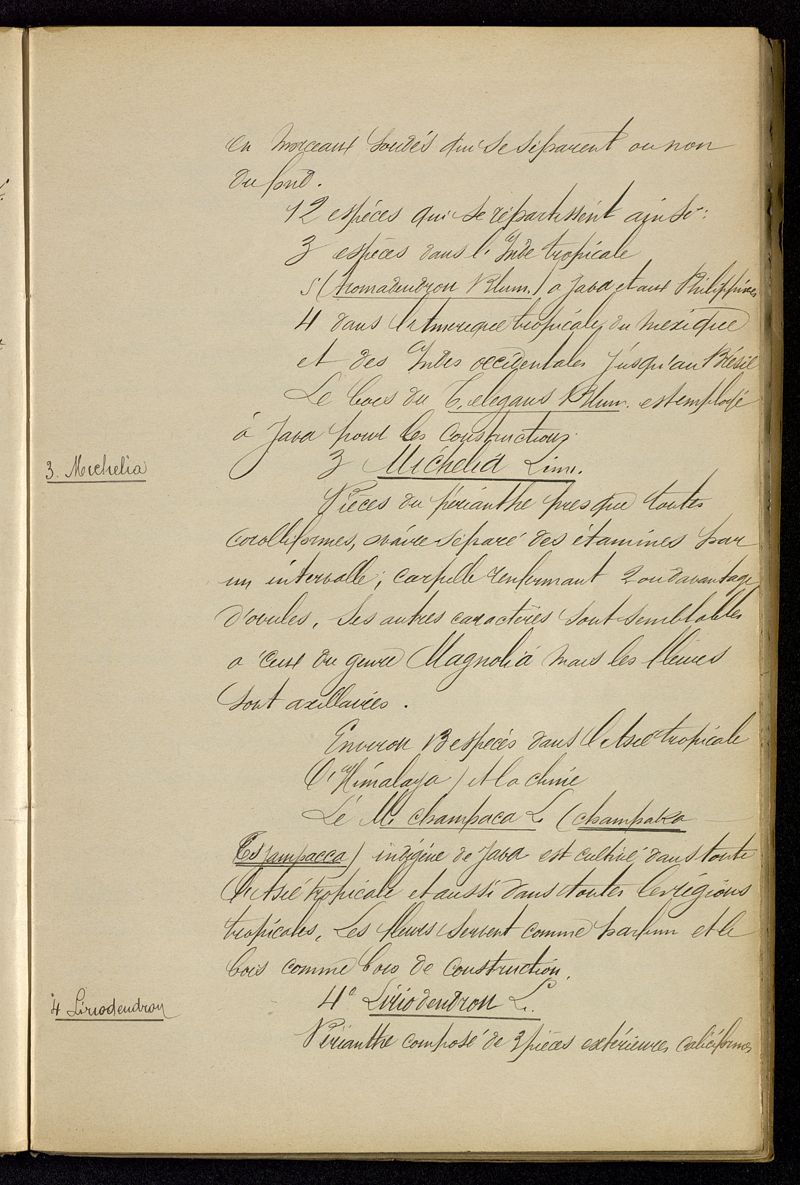 en morceaux soudés qui se séparent ou non
du fond.
12 espèces qui se répartissent ainsi :
3 espèces dans l'Inde tropicale
5 (Aromadendron Blum.) à Java et aux Philippines
4 dans l'Amerique tropicale, du mexique
et des Indes occidentales jusqu'au Brésil
Le bois du T. elegans Blum. est employé
à Java pour les constructions.
3. Michelia
3 Michelia Linn.
Pièces du périanthe presque toutes
corolliformes, ovaire séparé des étamines par
un intervalle ; carpelle renfermant 2 ou davantage
d'ovules. Ses autres caractères sont semblables
a ceux du genre Magnolia mais les fleurs
sont axillaires.
Environ 13 espèces dans l'Asie tropicale
(l'Himalaya) et la chine
Le M. champaca L. (champaka
Tsjampacca) indigène de Java est cultivé dans toute
l'Asie tropicale et aussi dans toutes les régions
tropicales. Les fleurs servent comme parfum et le
bois comme bois de construction.
4 Liriodendron
4° Liriodendron L.
Périanthe composé de 3 pièces extérieures caliciformes